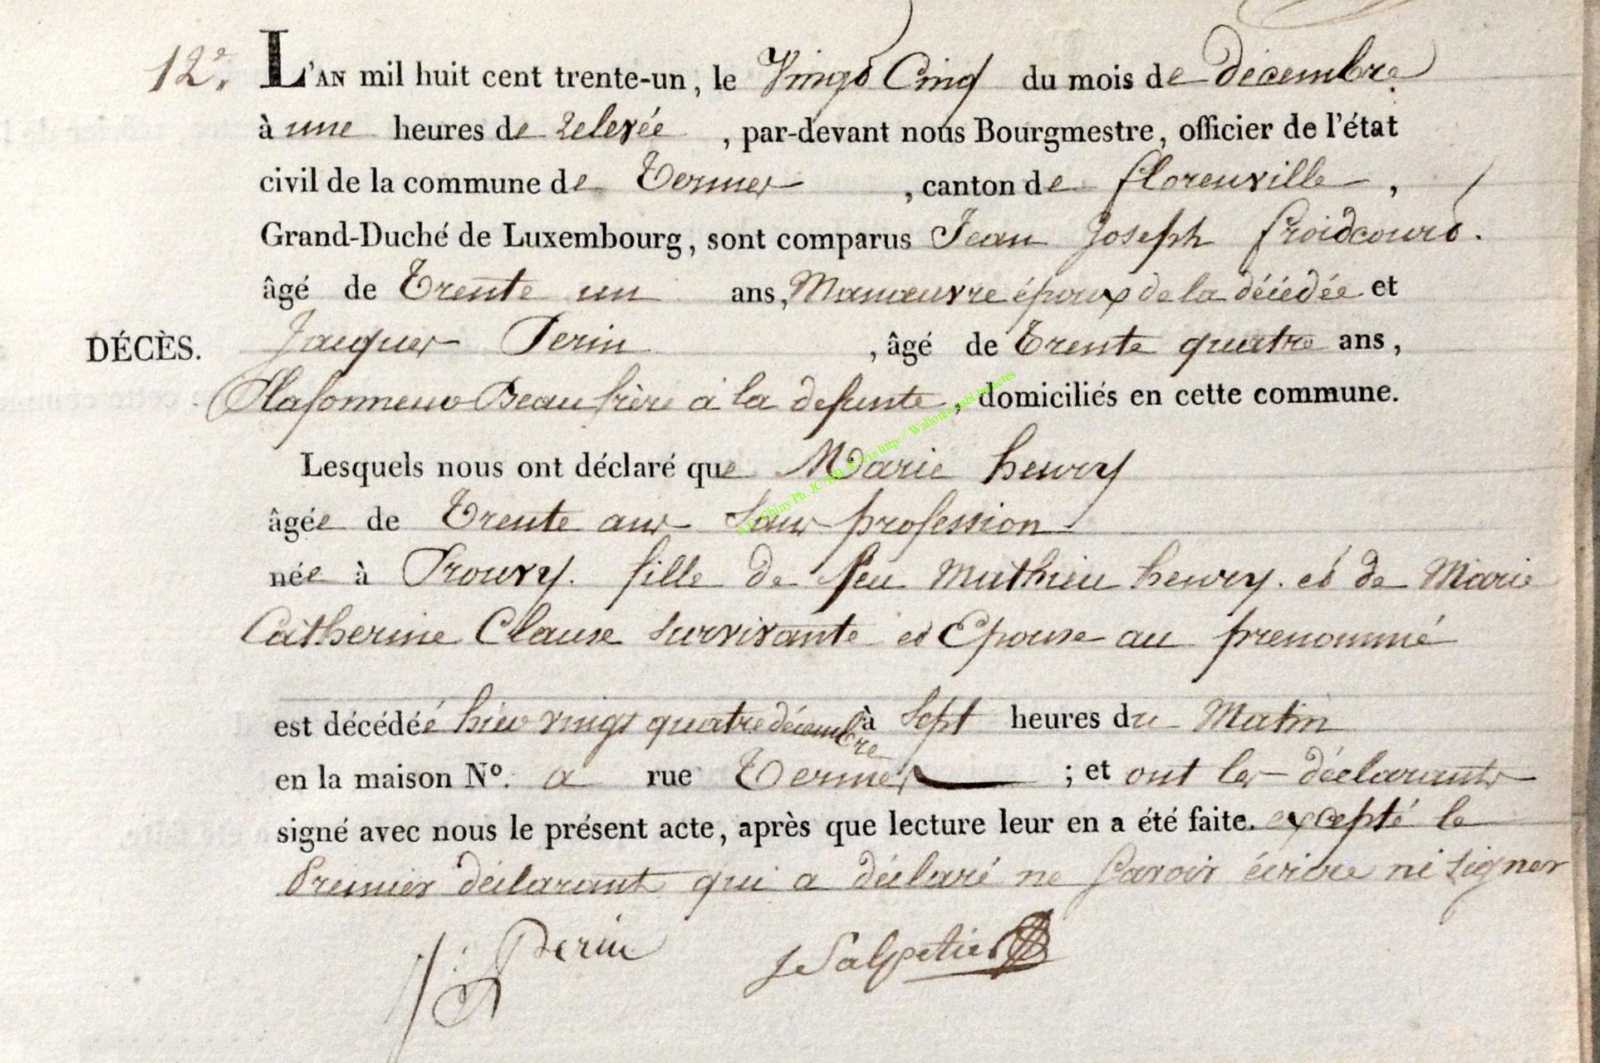 12e. L'AN mil huit cent trente-un, le Vingt Cinq du mois de décembre
à une heures de relevée, par-devant nous Bourgmestre, officier de l'état
civil de la commune de Termes, canton de florenville,
Grand-Duché de Luxembourg, sont comparus Jean Joseph froidcourt.
âgé de Trente un ans, Manœuvre époux de la décédée et
DÉCÈS. Jacques Perin, âgé de Trente quatre ans,
Plafonneur Beau frère à la defunte, domiciliés en cette commune.
Lesquels nous ont déclaré que Marie henry
âgée de Trente ans sans profession
née à Prouvy. fille de feu Mathieu henry. et de Marie
Catherine Clause survivante et Epouse au prenommé
est décédéé hier vingt quatre décembre à Sept heures du Matin
en la maison No. a rue Termes; et ont les déclarants
signé avec nous le présent acte, après que lecture leur en a été faite. excepté le
Premier déclarant qui a déclaré ne savoir écrire ni signer
J: Perin J Salpetier